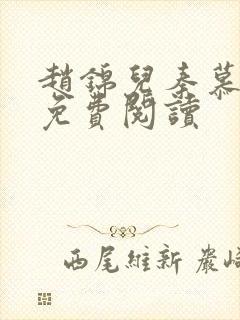 趙錦兒秦慕
免費閱讀
西尾維新 嚴崎